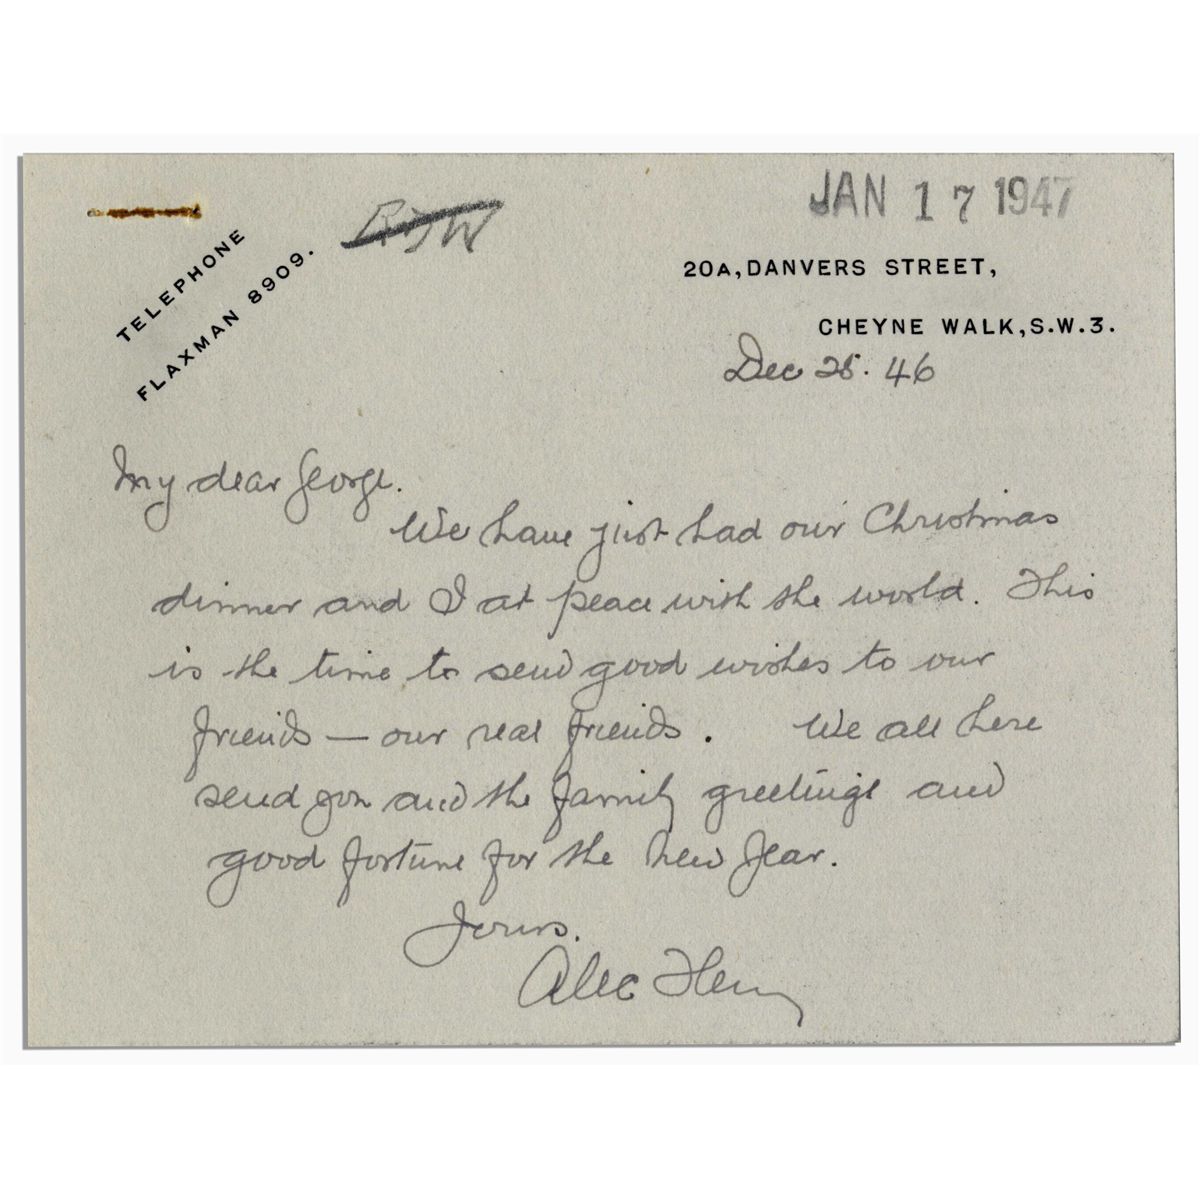 JAN 17 1947
TELEPHONE
FLAXMAN 8909.
20A, DANVERS STREET,
CHEYNE WALK, S.W.3.
Dec 25. 46
My dear George.
We have just had our Christmas
dinner and I at peace with the world. This
is the time to send good wishes to our
friends — our real friends. We all here
send you and the family greetings and
good fortune for the New Year.
Yours.
Alec Flem